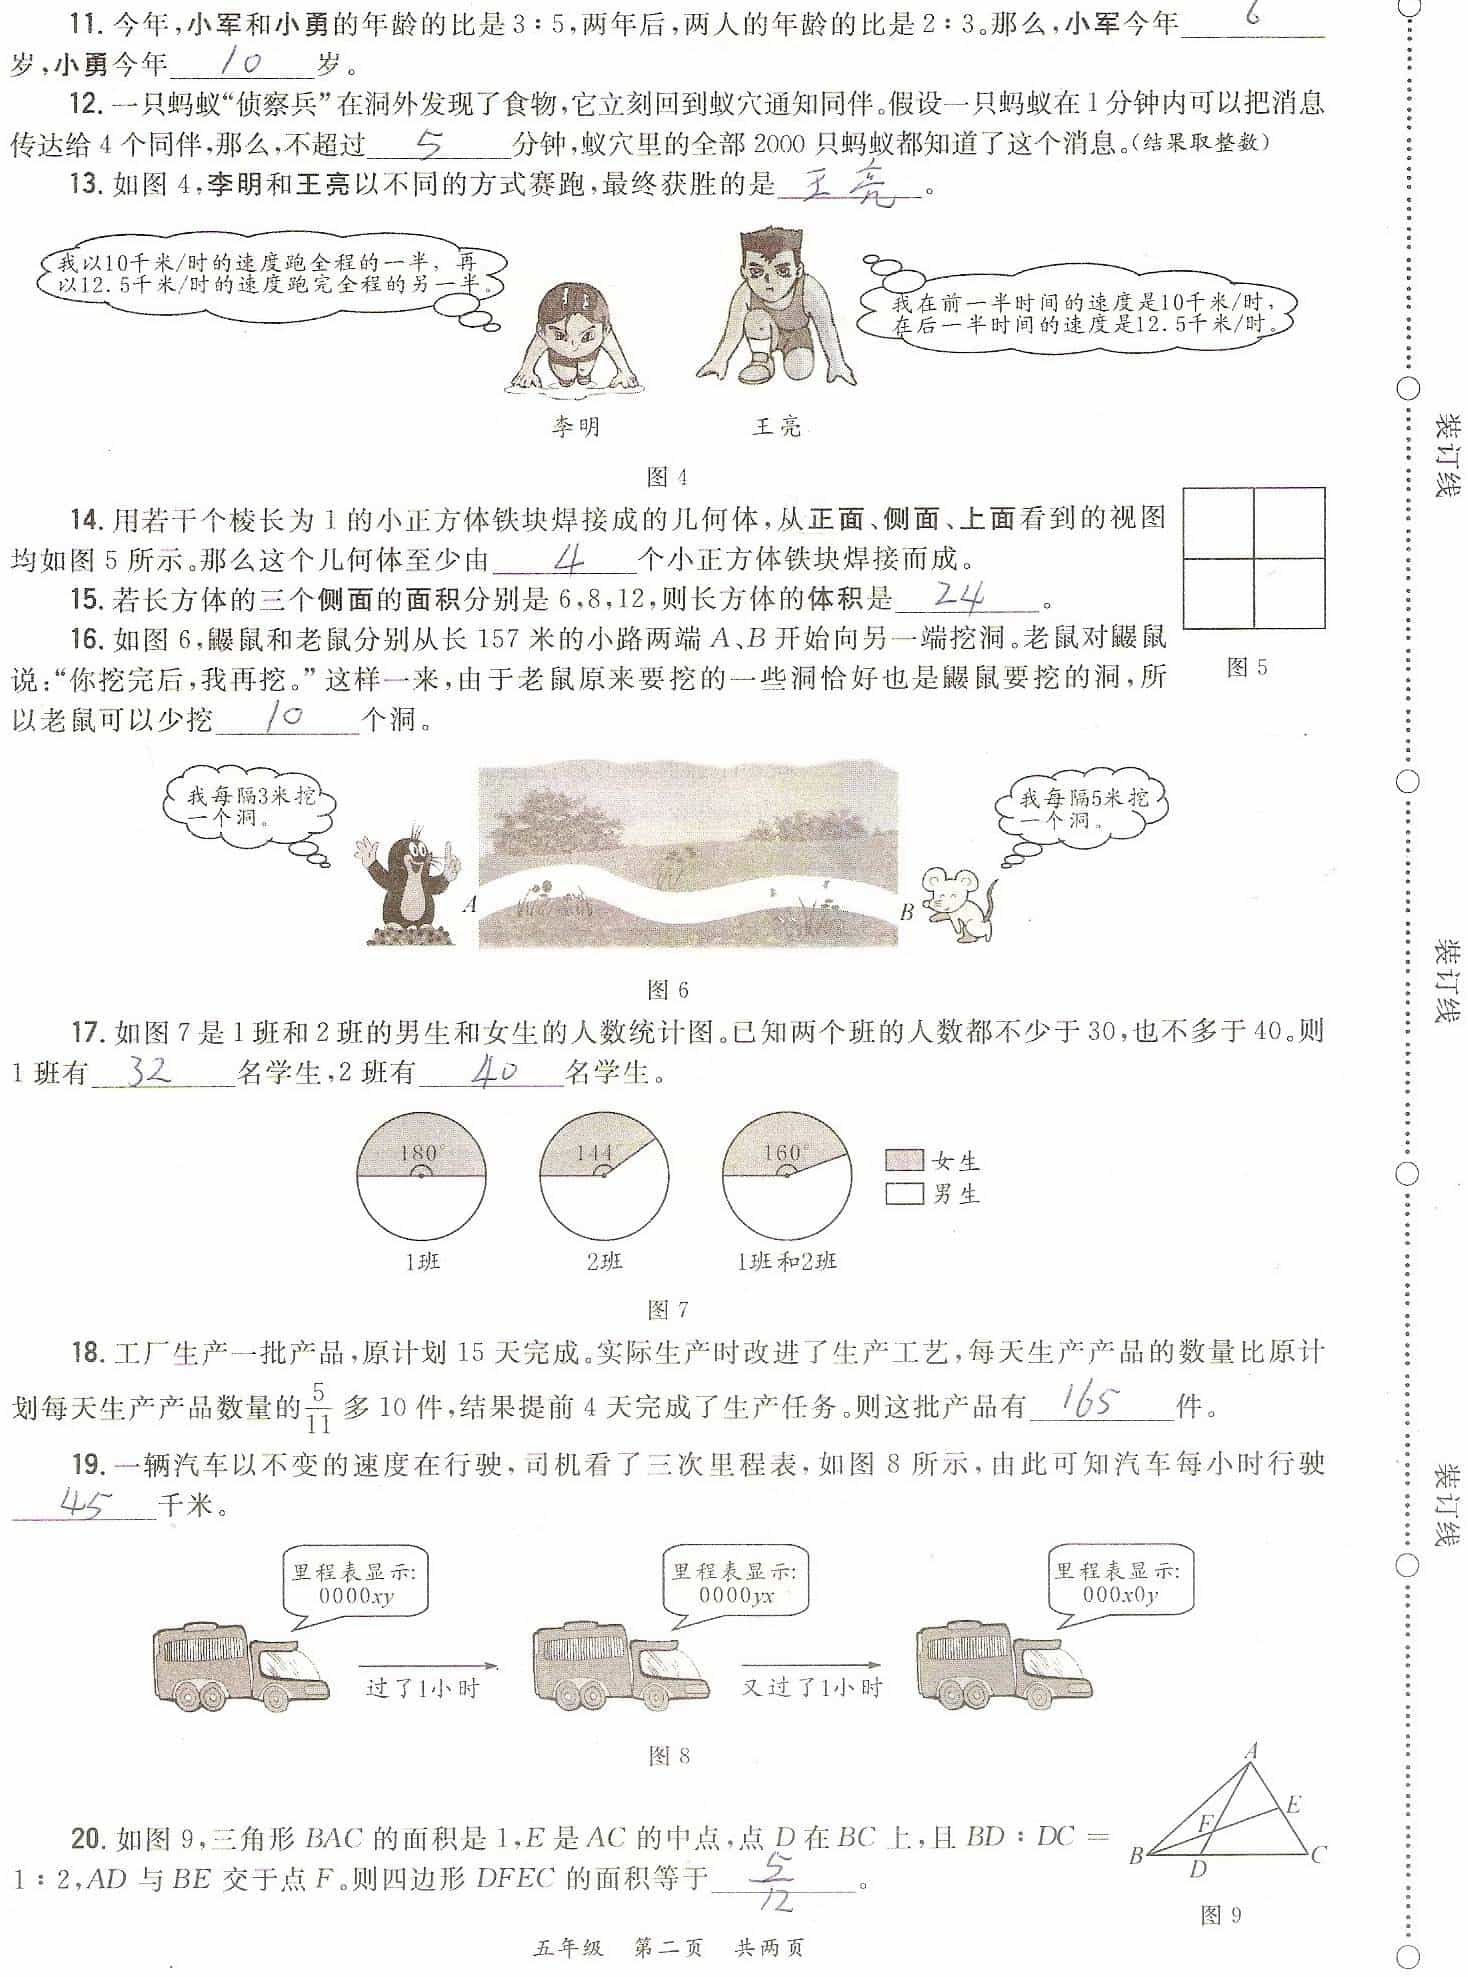 11. 今年,小军和小勇的年龄的比是 3∶5,两年后,两人的年龄的比是 2∶3。那么,小军今年 6
岁,小勇今年 10 岁。
12. 一只蚂蚁“侦察兵”在洞外发现了食物,它立刻回到蚁穴通知同伴。假设一只蚂蚁在 1 分钟内可以把消息
传达给 4 个同伴,那么,不超过 5 分钟,蚁穴里的全部 2000 只蚂蚁都知道了这个消息。(结果取整数)
13. 如图 4,李明和王亮以不同的方式赛跑,最终获胜的是 王亮 。
我以10千米/时的速度跑全程的一半,再
以12.5千米/时的速度跑完全程的另一半。
我在前一半时间的速度是10千米/时,
在后一半时间的速度是12.5千米/时。
李明
王亮
图 4
14. 用若干个棱长为 1 的小正方体铁块焊接成的几何体,从正面、侧面、上面看到的视图
均如图 5 所示。那么这个几何体至少由 4 个小正方体铁块焊接而成。
15. 若长方体的三个侧面的面积分别是 6,8,12,则长方体的体积是 24 。
16. 如图 6,鼹鼠和老鼠分别从长 157 米的小路两端 A、B 开始向另一端挖洞。老鼠对鼹鼠
说:“你挖完后,我再挖。”这样一来,由于老鼠原来要挖的一些洞恰好也是鼹鼠要挖的洞,所
以老鼠可以少挖 10 个洞。
图 5
我每隔3米挖
一个洞。
我每隔5米挖
一个洞。
A
B
图 6
17. 如图 7 是 1 班和 2 班的男生和女生的人数统计图。已知两个班的人数都不少于 30,也不多于 40。则
1 班有 32 名学生,2 班有 40 名学生。
180°
144°
160°
女生
男生
1班
2班
1班和2班
图 7
18. 工厂生产一批产品,原计划 15 天完成。实际生产时改进了生产工艺,每天生产产品的数量比原计
划每天生产产品数量的 5/11 多 10 件,结果提前 4 天完成了生产任务。则这批产品有 165 件。
19. 一辆汽车以不变的速度在行驶,司机看了三次里程表,如图 8 所示,由此可知汽车每小时行驶
45 千米。
里程表显示:
0000xy
里程表显示:
0000yx
里程表显示:
000x0y
过了1小时
又过了1小时
图 8
20. 如图 9,三角形 BAC 的面积是 1,E 是 AC 的中点,点 D 在 BC 上,且 BD∶DC =
1∶2,AD 与 BE 交于点 F。则四边形 DFEC 的面积等于 5/12 。
A
E
F
B
D
C
图 9
五年级 第二页 共两页
装订线
装订线
装订线